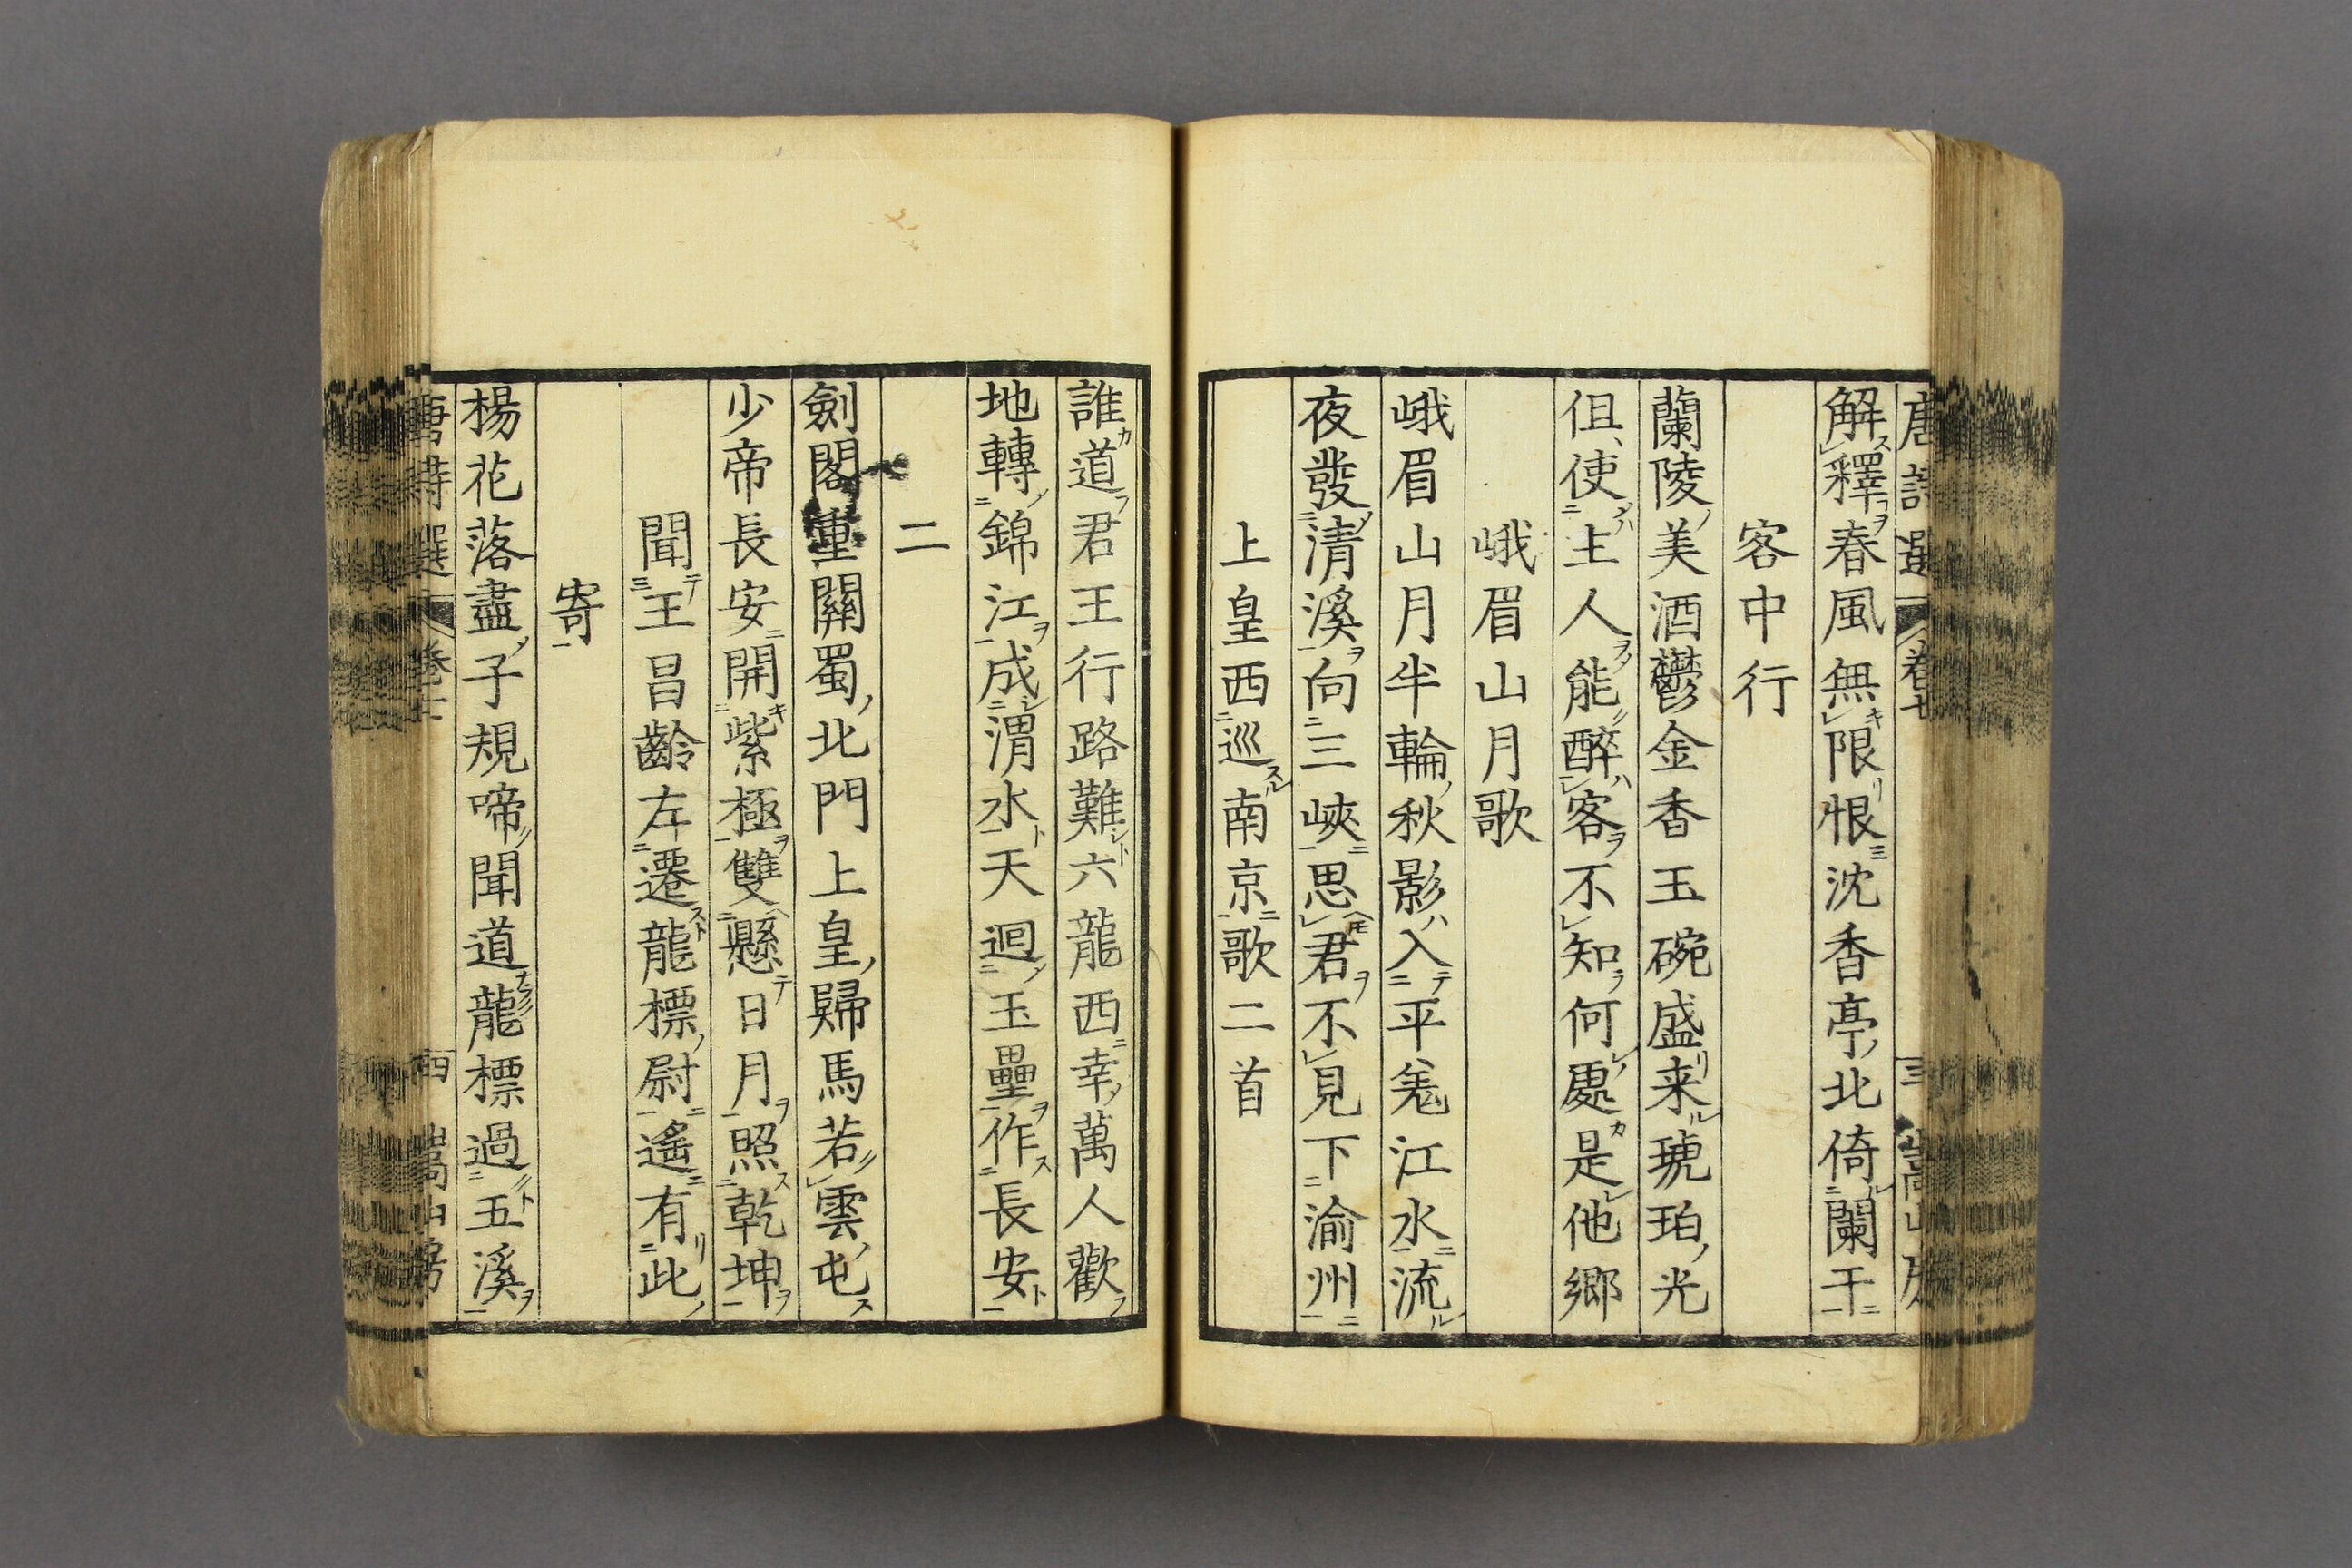 唐詩選 卷七 三 嵩山房
解釋春風無限恨沈香亭北倚闌干
客中行
蘭陵美酒鬱金香玉碗盛来琥珀光
但使主人能醉客不知何處是他鄉
峨眉山月歌
峨眉山月半輪秋影入平羌江水流
夜發清溪向三峽思君不見下渝州
上皇西巡南京歌二首
誰道君王行路難六龍西幸萬人歡
地轉錦江成渭水天迴玉壘作長安
二
劍閣重關蜀北門上皇歸馬若雲屯
少帝長安開紫極雙懸日月照乾坤
聞王昌齡左遷龍標尉遙有此
寄
楊花落盡子規啼聞道龍標過五溪
唐詩選 卷七 四 嵩山房